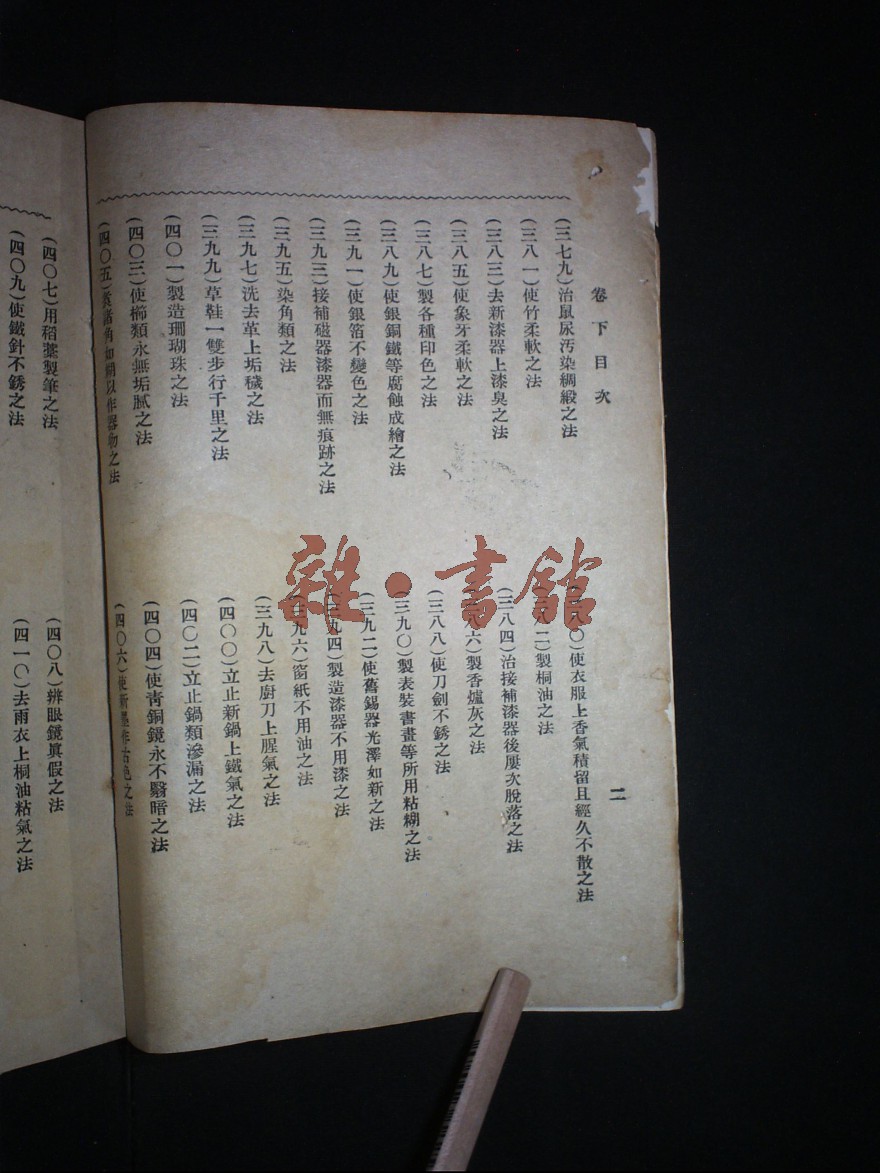 卷下目次
二
(三七九)治鼠尿汚染綢緞之法
(三八〇)使衣服上香氣積留且經久不散之法
(三八一)使竹柔軟之法
八二)製桐油之法
(三八三)去新漆器上漆臭之法
(三八四)治接補漆器後屢次脫落之法
(三八五)使象牙柔軟之法
八六)製香爐灰之法
(三八七)製各種印色之法
(三八八)使刀劍不銹之法
(三八九)使銀銅鐵等腐蝕成繪之法
(三九〇)製表裝書畫等所用粘糊之法
(三九一)使銀箔不變色之法
(三九二)使舊錫器光澤如新之法
(三九三)接補磁器漆器而無痕跡之法
三九四)製造漆器不用漆之法
(三九五)染角類之法
三九六)窗紙不用油之法
(三九七)洗去革上垢穢之法
(三九八)去廚刀上腥氣之法
(三九九)草鞋一雙步行千里之法
(四〇〇)立止新鍋上鐵氣之法
(四〇一)製造珊瑚珠之法
(四〇二)立止鍋類滲漏之法
(四〇三)使櫛類永無垢膩之法
(四〇四)使靑銅鏡永不翳暗之法
(四〇五)煑諸角如糊以作器物之法
(四〇六)使新墨作古色之法
(四〇七)用稻藁製筆之法
(四〇八)辨眼鏡眞假之法
(四〇九)使鐵針不銹之法
(四一〇)去雨衣上桐油粘氣之法
雜·書館